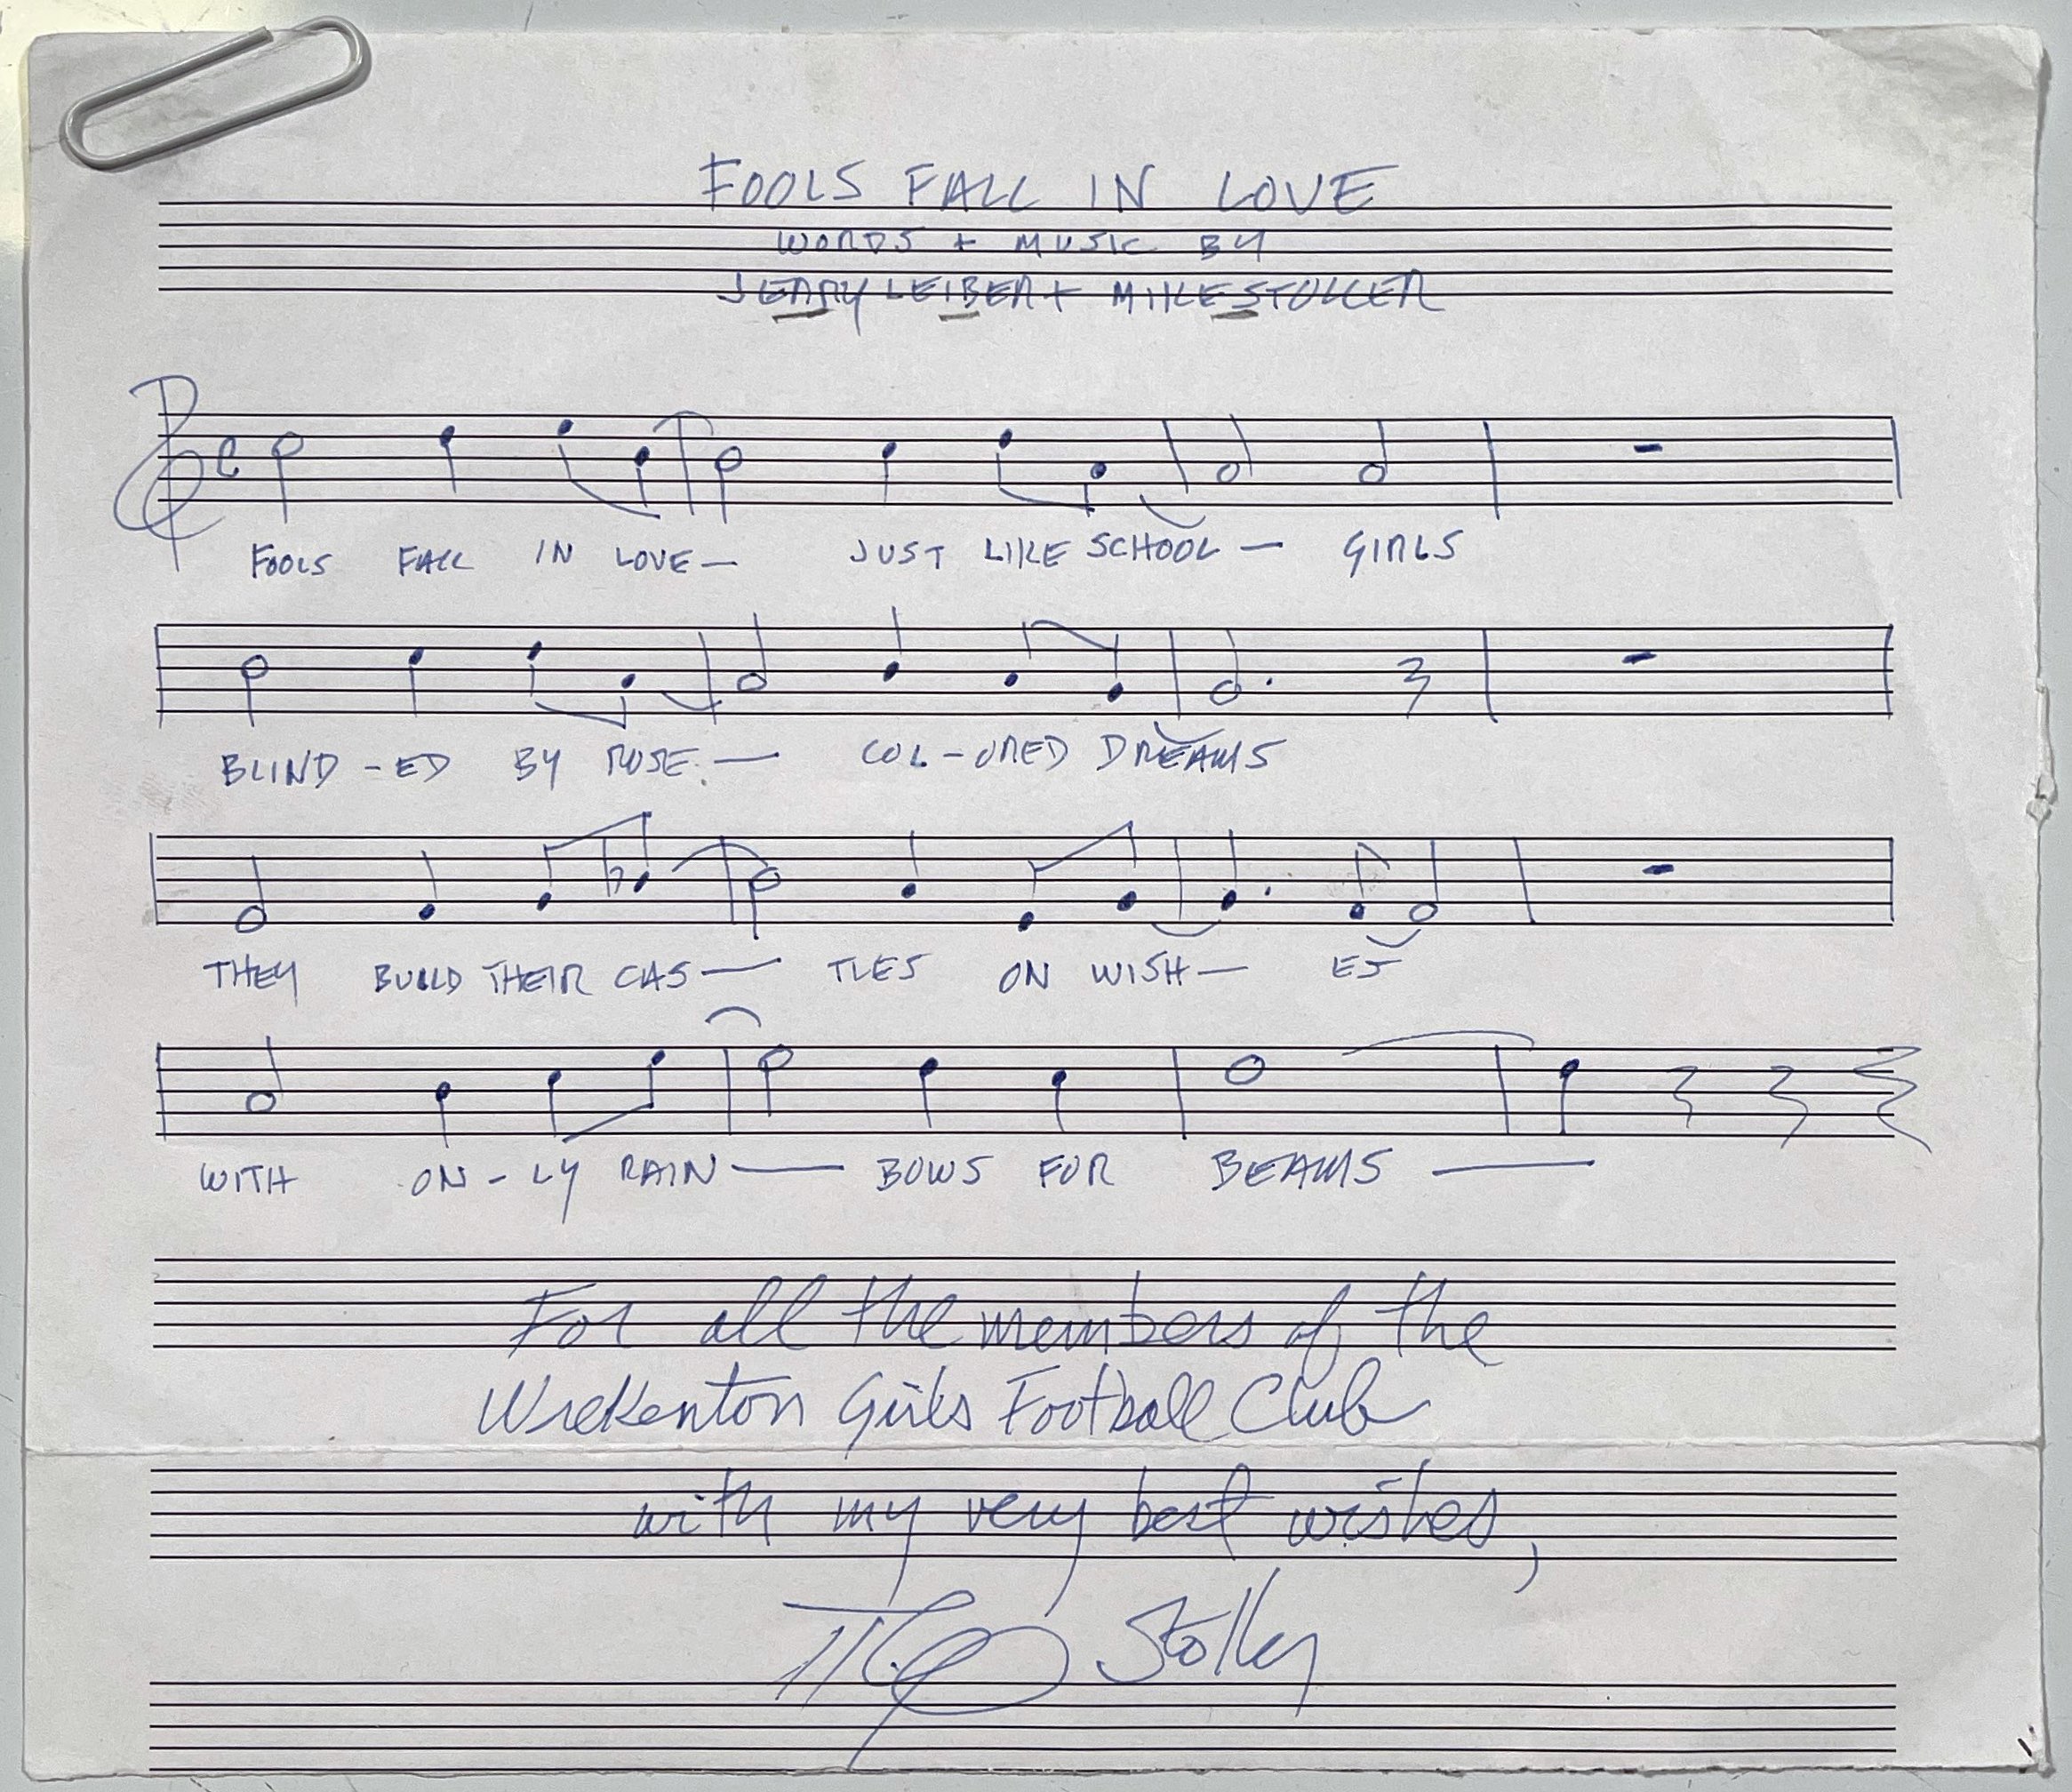 FOOLS FALL IN LOVE
WORDS + MUSIC BY
JERRY LEIBER + MIKE STOLLER
FOOLS FALL IN LOVE — JUST LIKE SCHOOL — GIRLS
BLIND - ED BY ROSE — COL - ORED DREAMS
THEY BUILD THEIR CAS — TLES ON WISH — ES
WITH ON - LY RAIN — BOWS FOR BEAMS —
For all the members of the
Wrekenton Girls Football Club
with my very best wishes,
Mike Stoller